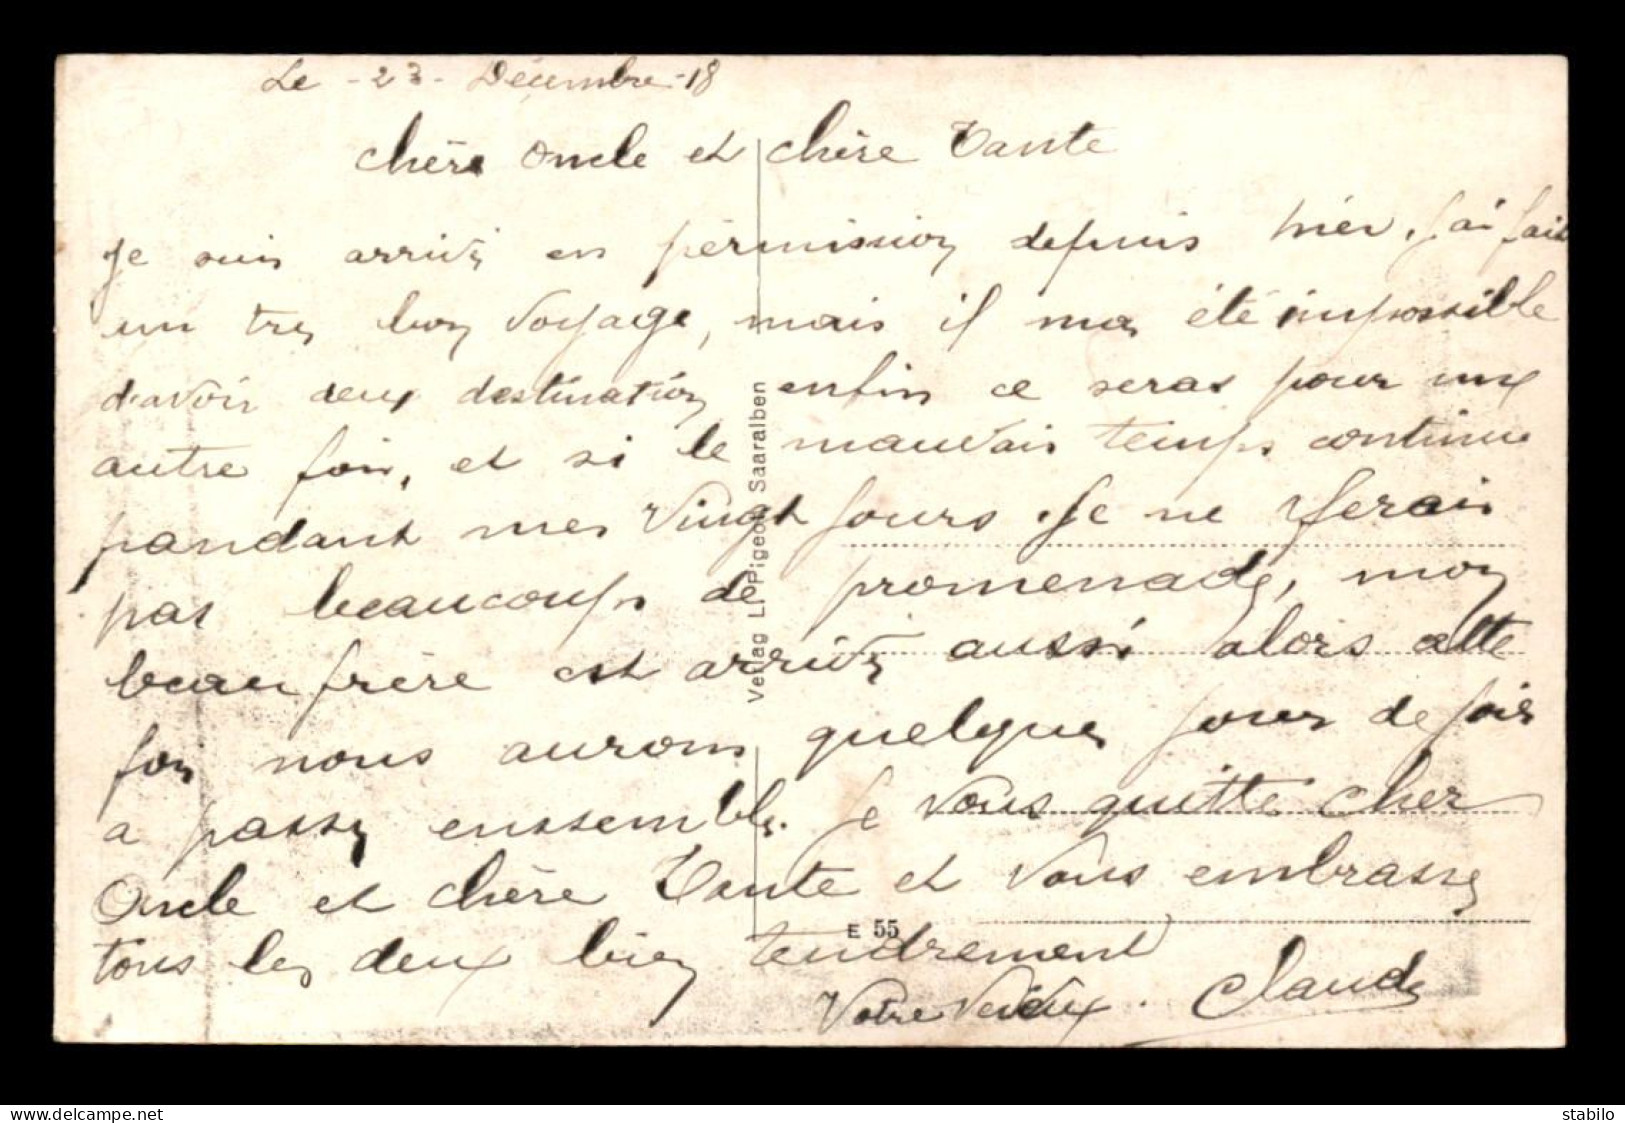 Le - 23 - Décembre - 18
chère oncle et chère Tante
Je suis arrivé en permission depuis hier, j'ai fait
un tres bon voyage, mais il mas été impossible
d'avoir deux destination enfin ce seras pour une
autre fois, et si le mauvais temps continue
pandant mes vingt jours je ne ferais
pas beaucoups de promenade, mon
beau frère est arrivé aussi alors cette
fois nous aurons quelques jours de fois
a passé enssemble. Je vous quitte cher
Oncle et chère Tante et vous embrasse
tous les deux bien tendrement
Votre Claude
Verlag L. Pigeon Saaralben
E 55
delcampe.net
stabilo